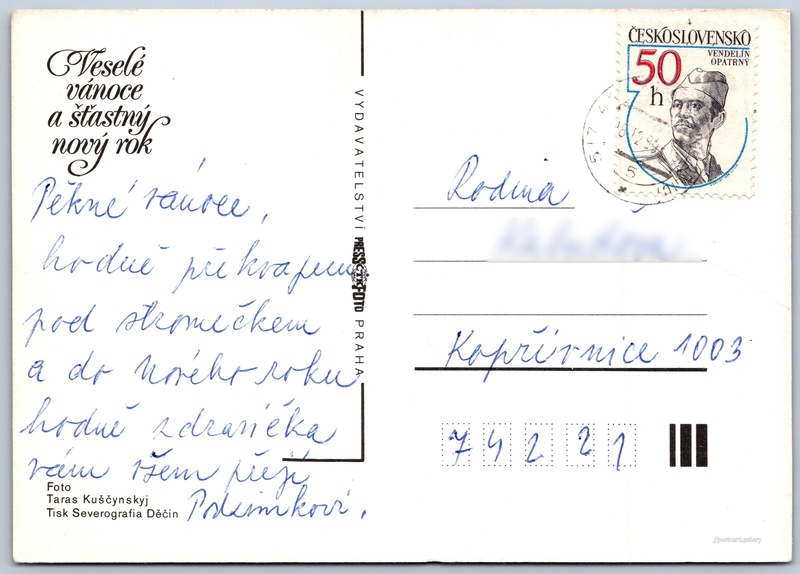 Veselé
vánoce
a šťastný
nový rok
Pěkné vánoce,
hodně překvapení
pod stromečkem
a do Nového roku
hodně zdravíčka
vám všem přejí
Podzimkovi.
Foto
Taras Kuščynskyj
Tisk Severografia Děčín
VYDAVATELSTVÍ PRESSFOTO PRAHA
ČESKOSLOVENSKO
VENDELÍN
OPATRNÝ
50
h
Rodina
Kopřivnice 1003
74221